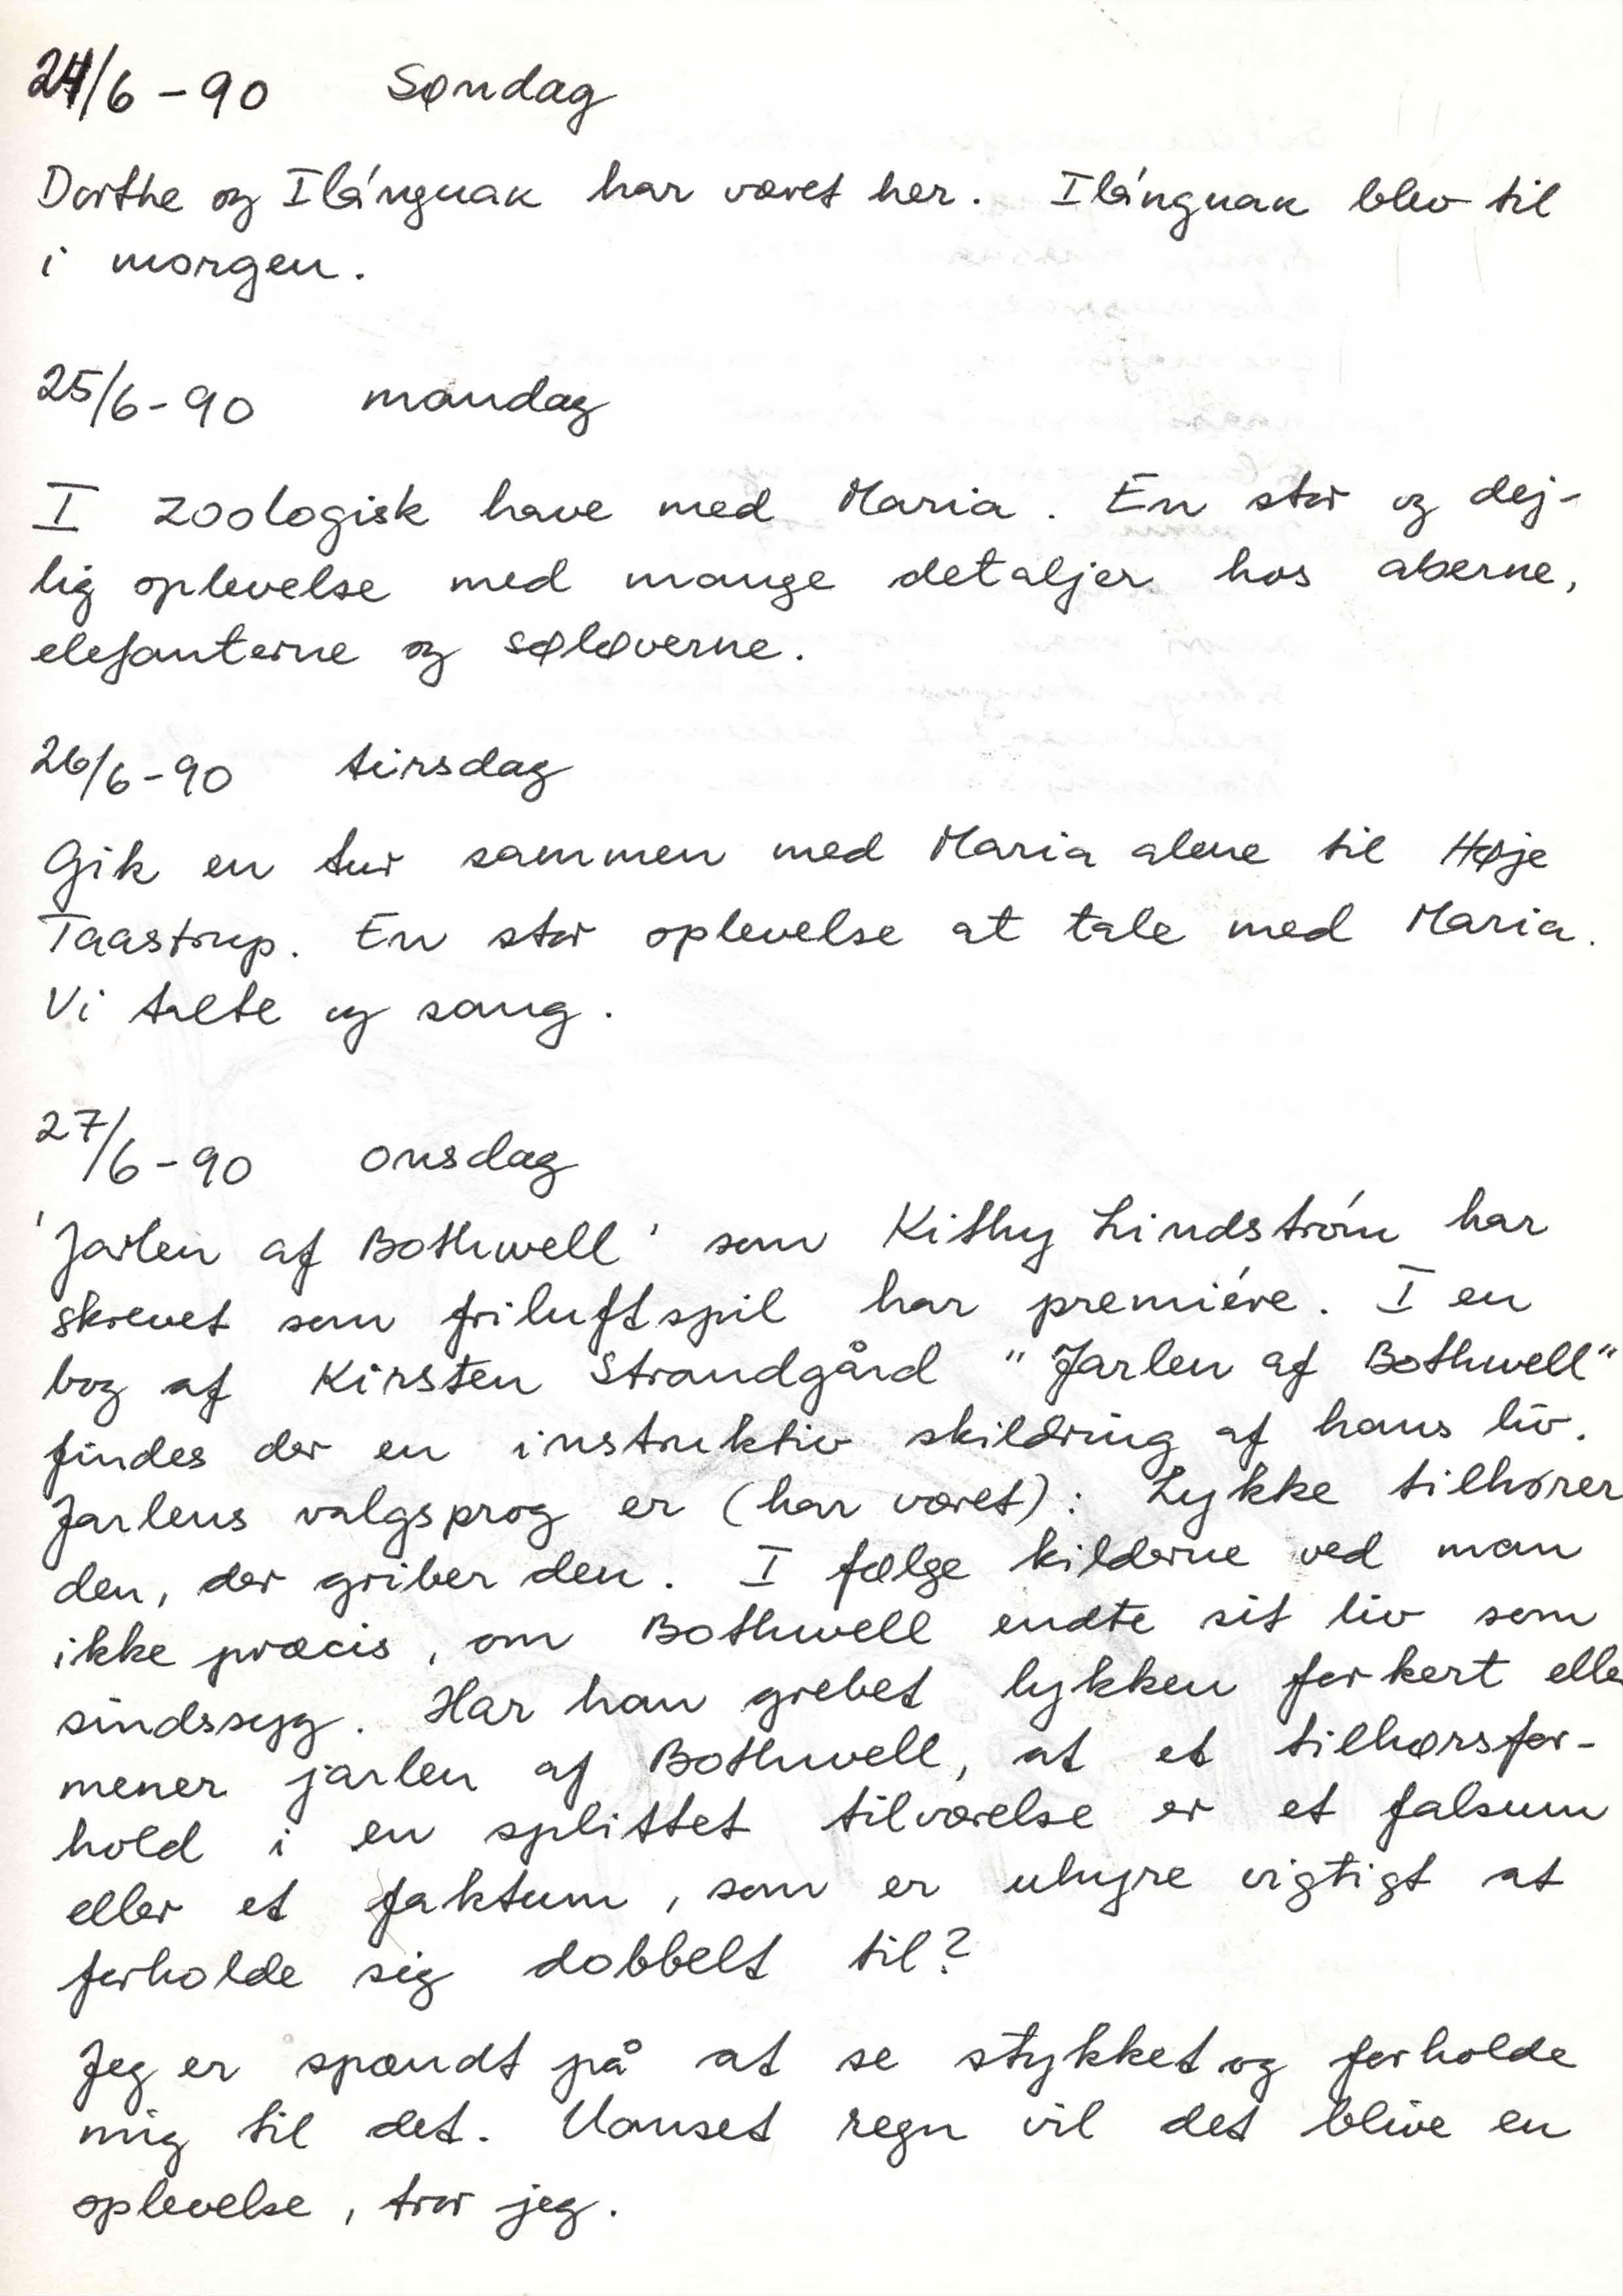 24/6-90 Søndag
Dorthe og Ilánguak har været her. Ilánguak blev til
i morgen.
25/6-90 mandag
I zoologisk have med Maria. En stor og dej-
lig oplevelse med mange detaljer hos aberne,
elefanterne og søløverne.
26/6-90 tirsdag
Gik en tur sammen med Maria alene til Høje
Taastrup. En stor oplevelse at tale med Maria.
Vi talte og sang.
27/6-90 onsdag
'Jarlen af Bothwell' som Kithy Lindstróm har
skrevet som friluftspil har premiére. I en
bog af Kirsten Strandgård "Jarlen af Bothwell"
findes der en instruktiv skildring af hans liv.
Jarlens valgsprog er (har været): Lykke tilhører
den, der griber den. I følge kilderne ved man
ikke præcis, om Bothwell endte sit liv som
sindssyg. Har han grebet lykken forkert elle
mener jarlen af Bothwell, at et tilhørsfor-
hold i en splittet tilværelse er et falsum
eller et faktum, som er uhyre vigtigt at
forholde sig dobbelt til?
Jeg er spændt på at se stykket og forholde
mig til det. Uanset regn vil det blive en
oplevelse, tror jeg.